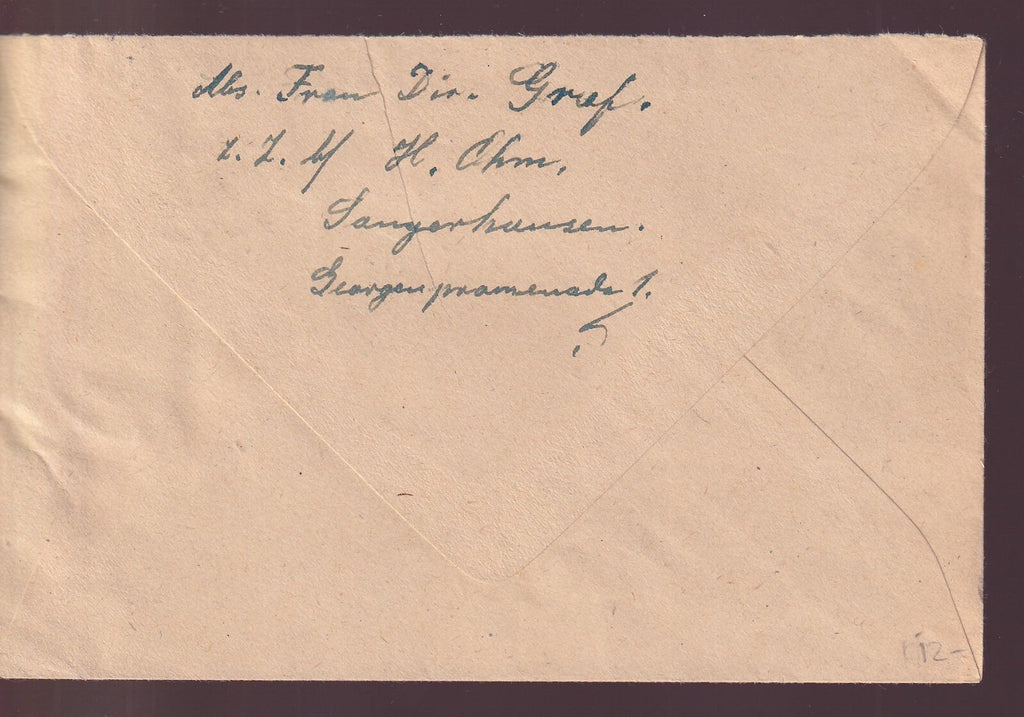 Abs. Frau Dir. Graf.
z. Z. b/ H. Ohm.
Sangerhausen.
Georgenpromenade 1.
12-